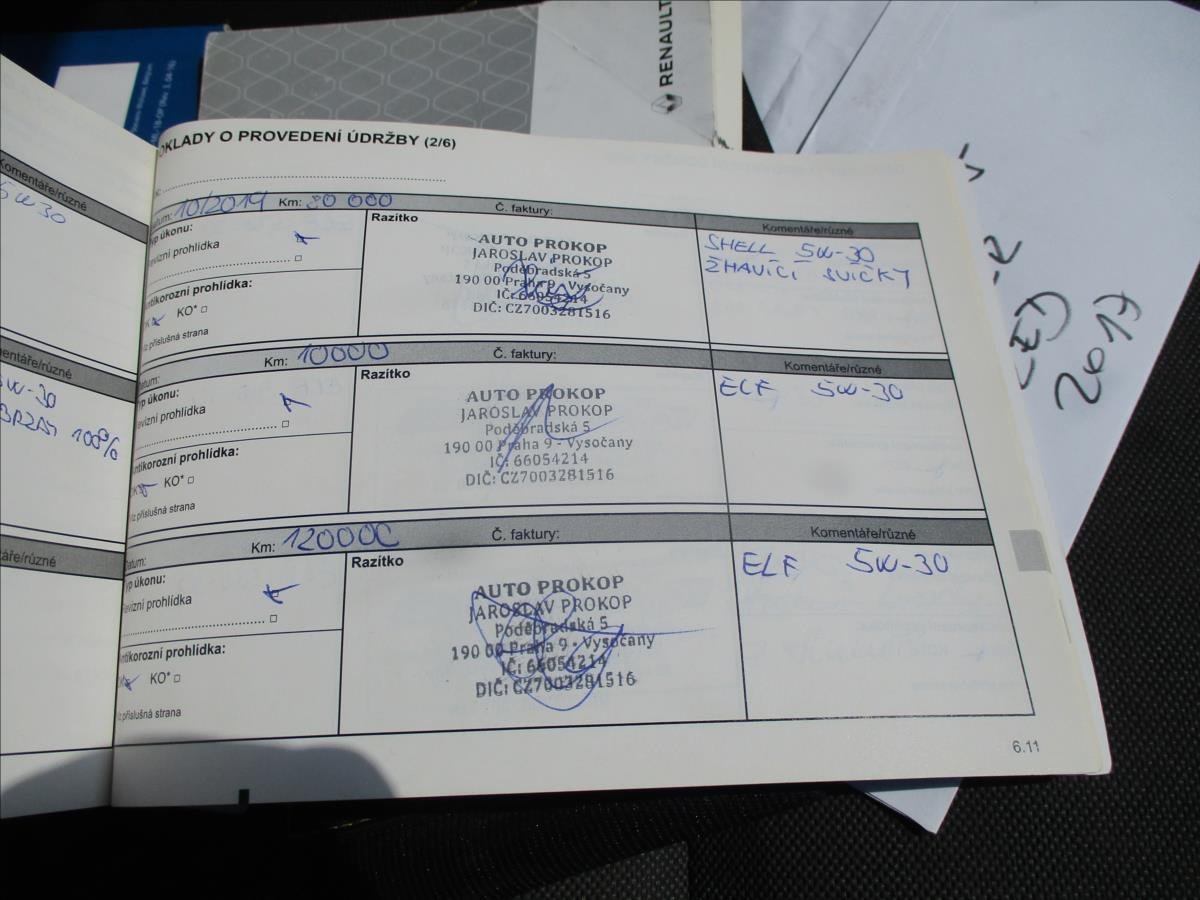 RENAULT
OKLADY O PROVEDENÍ ÚDRŽBY (2/6)
Komentáře/různé
5W30
10/2019 Km: 80 000 Č. faktury:
Razítko
Komentáře/různé
yp úkonu:
evizní prohlídka
ntikorozní prohlídka:
KO*
příslušná strana
AUTO PROKOP
JAROSLAV PROKOP
Poděbradská 5
190 00 Praha 9 - Vysočany
IČ: 66054214
DIČ: CZ7003281516
SHELL 5W-30
ŽHAVÍCÍ SVÍČKY
entáře/různé
5W-30
100%
Km: 10000 Č. faktury:
Razítko
Komentáře/různé
yp úkonu:
evizní prohlídka
ntikorozní prohlídka:
KO*
příslušná strana
AUTO PROKOP
JAROSLAV PROKOP
Poděbradská 5
190 00 Praha 9 - Vysočany
IČ: 66054214
DIČ: CZ7003281516
ELF 5W-30
áře/různé
atum: Km: 120000 Č. faktury:
Razítko
Komentáře/různé
yp úkonu:
evizní prohlídka
ntikorozní prohlídka:
KO*
příslušná strana
AUTO PROKOP
JAROSLAV PROKOP
Poděbradská 5
190 00 Praha 9 - Vysočany
IČ: 66054214
DIČ: CZ7003281516
ELF 5W-30
6.11
2017